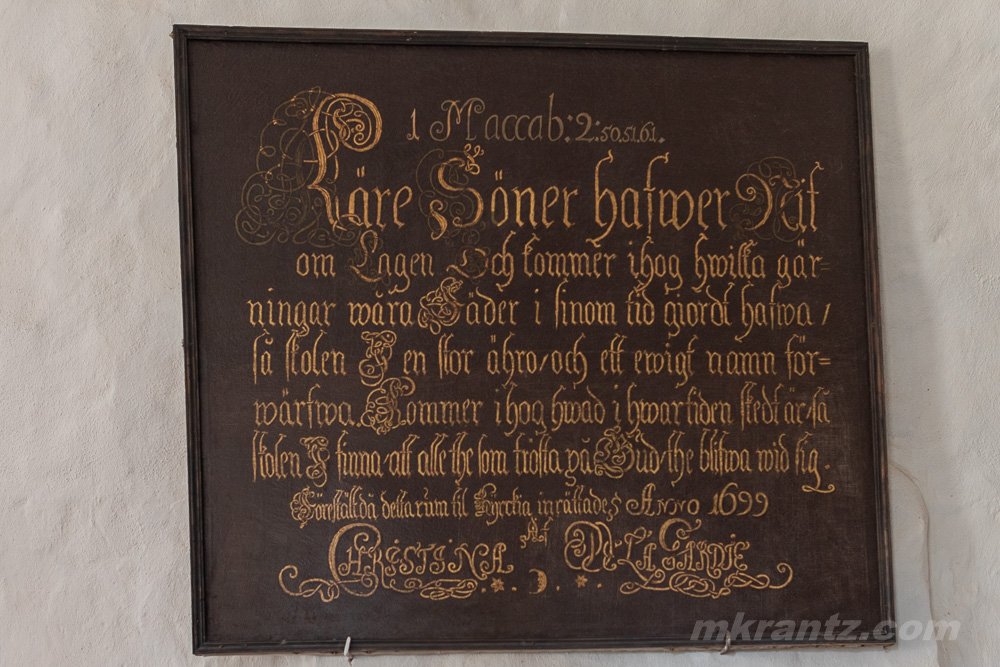 1 Maccab: 2: 50. 51. 61.
Käre Söner hafwer Nit
om Lagen Och kommer ihog hwilka gär=
ningar wåra Fäder i sinom tid giordt hafwa /
så skolen I en stor ähro / och ett ewigt namn för=
wärfwa. Kommer ihog hwad i hwar tiden skedt är / så
skolen I finna / att alle the som trösta på Gud / the blifwa wid sig.
Förestält då detta rum til Kyrckia inrättades Anno 1699
Af
CHRISTINA M. LA GARDIE
mkrantz.com